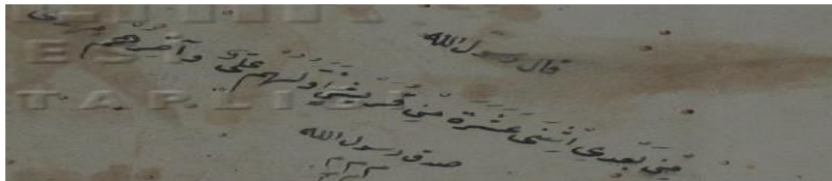 قال رسول الله
مِنْ بَعدِى اثْنِىْ عَشَرَة مِنْ قُرَيشٍ أَوَّلُهم عَلِىٌّ وآخِرُهُم
صدق رسول الله